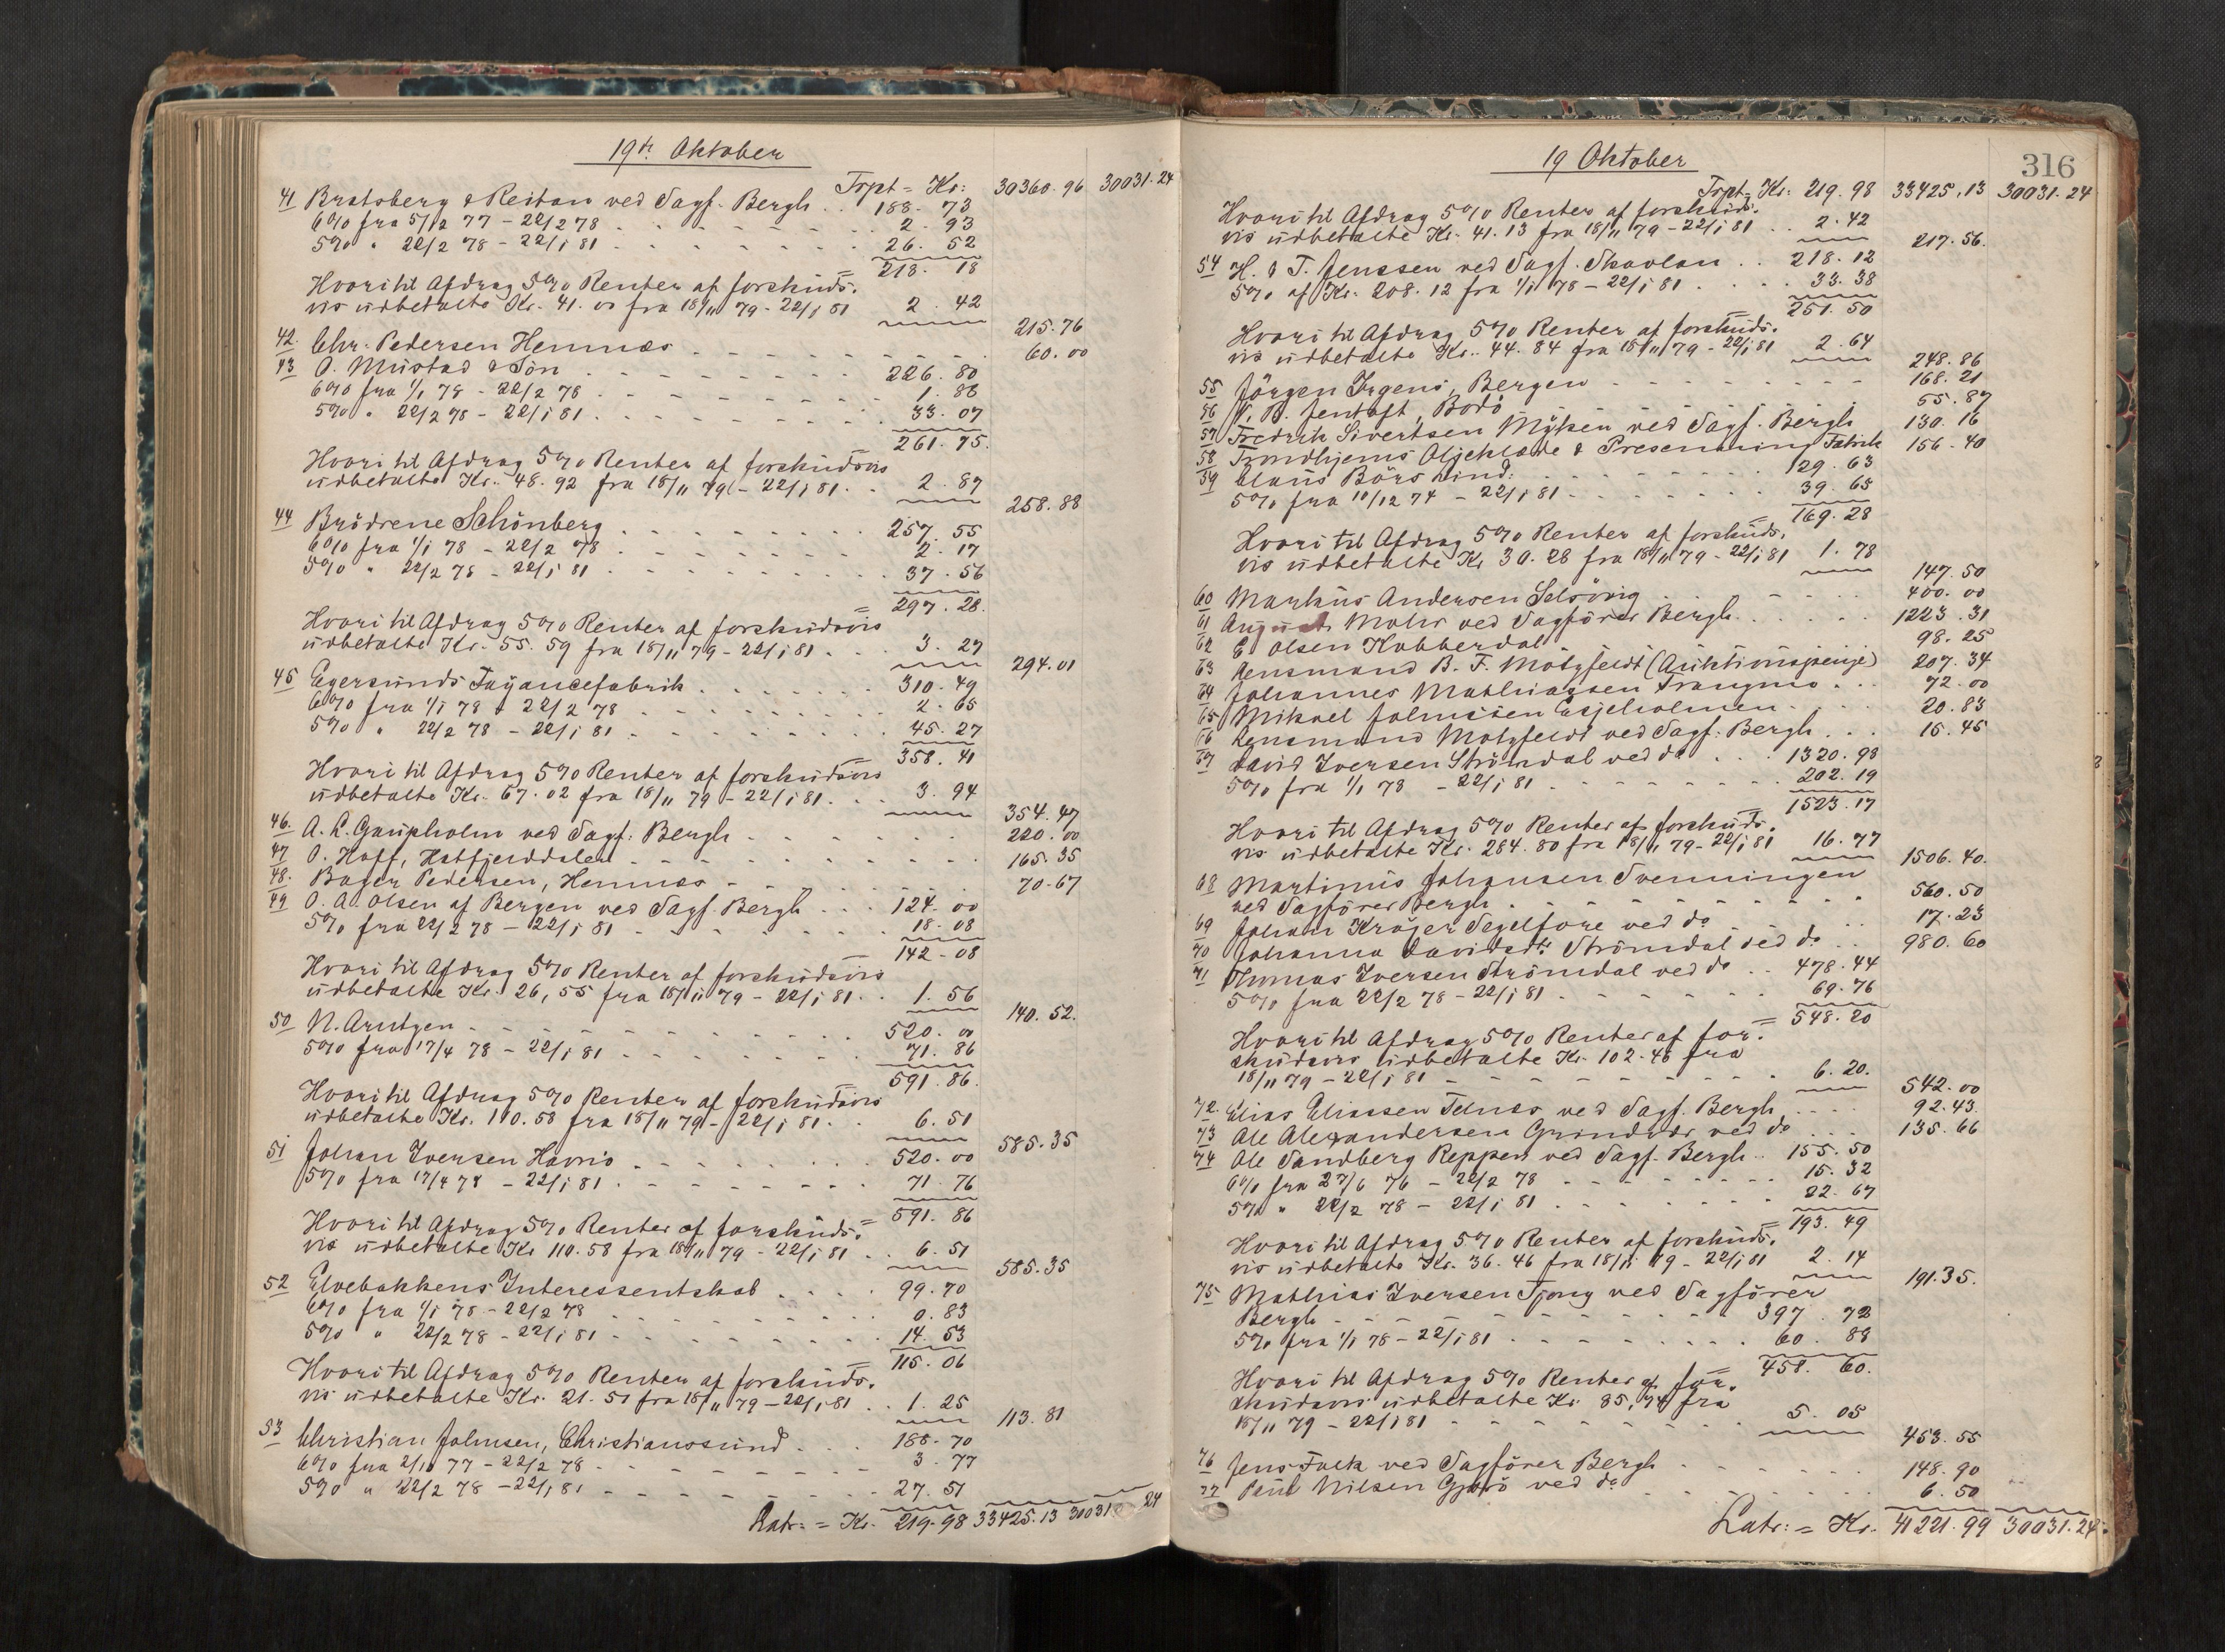 19de Oktober
Trpt = Kr: 30360.96 30031.24
41 Bratsberg & Reitan ved Sagf. Bergh . . 188.73
6% fra 5/12 77 - 22/2 78 2.93
5% " 22/2 78 - 22/1 81 26.52
= 218.18
Hvori til Afdrag 5% Renter af forskuds-
vis udbetalte Kr. 41.00 fra 18/11 79 - 22/1 81 2.42
215.76
42. Chr. Pedersen Hemnæs 60.00
43 O. Mustad & Sön 226.80
6% fra 1/1 78 - 22/2 78 1.88
5% " 22/2 78 - 22/1 81 33.07
261.75.
Hvori til Afdrag 5% Renter af forskudsvis
udbetalte Kr. 48.92 fra 18/11 79 - 22/1 81 . . 2.87
258.88
44 Brödrene Schönberg 257.55
6% fra 1/1 78 - 22/2 78 2.17
5% " 22/2 78 - 22/1 81 37.56
= 297.28.
Hvori til Afdrag 5% Renter af forskudsvis
udbetalte Kr. 55.59 fra 18/11 79 - 22/1 81 . . . 3.27
294.01
45 Egersunds Fayancefabrik 310.49
6% fra 1/1 78 - 22/2 78 2.65
5% " 22/2 78 - 22/1 81 45.27
= 358.41
Hvori til Afdrag 5% Renter af forskudsvis
udbetalte Kr. 67.02 fra 18/11 79 - 22/1 81 . . . 3.94
354.47
46. A. L. Gaupholm ved Sagf. Bergh 220.00
47 O. Hoff, Hatfjelddalen 165.35
48. Bager Pedersen, Hemnæs 70.67
49 O. A. Olsen af Bergen ved Sagf. Bergh . . . 124.00
5% fra 22/2 78 - 22/1 81 18.08
= 142.08
Hvori til Afdrag 5% Renter af forskudsvis
udbetalte Kr. 26,55 fra 18/11 79 - 22/1 81 . . 1.56
140.52.
50 N. Arntzen 520.00
5% fra 17/4 78 - 22/1 81 71.86
591.86.
Hvori til Afdrag 5% Renter af forskudsvis
udbetalte Kr. 110.58 fra 18/11 79 - 22/1 81 . . 6.51
585.35
51 Johan Iversen 520.00
5% fra 17/4 78 - 22/1 81 71.76
= 591.86
Hvori til Afdrag 5% Renter af forskuds-
vis udbetalte Kr 110.58 fra 18/11 79 - 22/1 81 . . 6.51
585.35
52 Elvebakkens Interessentskab 99.70
6% fra 1/1 78 - 22/2 78 0.83
5% " 22/2 78 - 22/1 81 14.53
= 115.06
Hvori til Afdrag 5% Renter af forskuds-
vis udbetalte Kr. 21.51 fra 18/11 79 - 22/1 81 . . 1.25
113.81
53 Christian Johnsen, Christianssund 188.70
6% fra 2/10 77 - 22/2 78 3.77
5% " 22/2 78 - 22/1 81 27.51
Latr: = Kr. 219.98 33425.13 30031.24
19 Oktober
316
Trpt = Kr: 219.98 33425,13 30031.24
Hvori til Afdrag 5% Renter af forskuds-
vis udbetalte Kr. 41.13 fra 18/11 79 - 22/1 81 . . 2.42
217.56.
54 H. & T. Jenssen ved Sagf. Skavlan . . 218.12
5% af Kr. 208.12 fra 1/1 78 - 22/1 81 33.38
= 251.50
Hvori til Afdrag 5% Renter af forskuds-
vis udbetalte Kr. 44.84 fra 18/11 79 - 22/1 81 2.64
248.86
55 Jörgen Irgens, Bergen 168.21
56 Jentoft, Bodö 55.87
57 Fredrik Sivertsen Myken ved Sagf. Bergh 130.16
58 Trondhjems Oljeklæde & Presenning Fabrik 156.40
59 Claus Börs Lind: 129.63
5% fra 10/12 74 - 22/1 81 39.65
= 169.28
Hvori til Afdrag 5% Renter af forskuds-
vis udbetalte Kr 30.28 fra 18/11 79 - 22/1 81 1.78
147.50
60 Markus Andersen Selsövig 400.00
61 August Mohr ved Sagförer Bergh 1223.31
62 E. Olsen Kobberdal 98.25
63 Lensmand B. F. Motzfeldt (Auktionspenge) 207.34
64 Johannes Mathiassen Trangmo 72.00
65 Mikael Johnssen Esjeholmen 20.83
66 Lensmand Motzfeldt ved Sagf. Bergh 15.45
67 David Iversen Strömdal ved do . . . 1320.98
5% fra 1/1 78 - 22/1 81 202.19
= 1523.17
Hvori til Afdrag 5% Renter af forskuds-
vis udbetalte Kr. 284.80 fra 18/11 79 - 22/1 81 16.77
1506.40.
68 Martinus Johansen Svenningen
ved Sagförer Bergh 560.50
69 Johan Kröger Segelfore ved do 17.23
70 Johanna Davidsdtr Strömdal ved do . . 980.60
71 Thomas Iversen Strömdal ved do . . 478.44
5% fra 22/2 78 - 22/1 81 69.76
= 548.20
Hvori til Afdrag 5% Renter af for-
skudsvis udbetalte Kr. 102.45 fra
18/11 79 - 22/1 81 6.20.
542.00
72. Elias Eliassen Telnes ved Sagf. Bergh 92.43.
73 Ole Alexandersen ved do 135.66
74 Ole Sandberg Reppen ved Sagf. Bergh . . 155.50
6% fra 27/6 76 - 22/2 78 15.32
5% " 22/2 78 - 22/1 81 22.67
= 193.49
Hvori til Afdrag 5% Renter af forskuds-
vis udbetalte Kr. 36.46 fra 18/11 79 - 22/1 81 2.14
191.35.
75 Mathias Iversen Tjong ved Sagförer
Bergh 397.72
5% fra 1/1 78 - 22/1 81 60.88
= 458.60.
Hvori til Afdrag 5% Renter af for-
skudsvis udbetalte Kr. 85,74 fra
18/11 79 - 22/1 81 5.05
453.55
76 Jens Falk ved Sagförer Bergh 148.90
77 Paul Nilsen Gjerö ved do 6.50
Latr: = Kr. 41221.99 30031.24